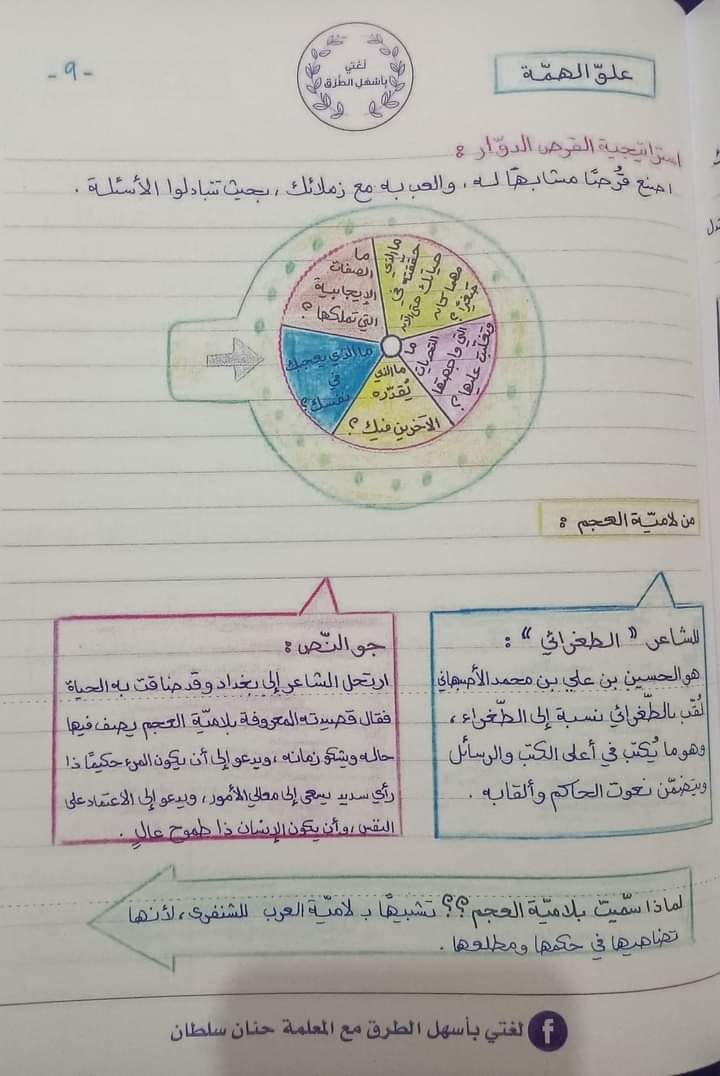 علوّ الهمّة
لغتي
بأسهل الطرق
- ٩ -
استراتيجية القرص الدوّار :
اصنع قُرصًا مشابهًا له، والعب به مع زملائك، بحيث تتبادلوا الأسئلة .
ما الذي
حققته في
حياتك حتى الآن
مهما كان
صغيرًا ؟
ما
الصفات
الإيجابية
التي تملكها ؟
ما
التحديات
التي واجهتها
وتغلبت عليها ؟
ما الذي يعجبك
في
نفسك ؟
ما الذي
يُقدّره
الآخرين فيك ؟
من لاميّة العجم :
للشاعر " الطغرائي " :
هو الحسين بن علي بن محمد الأصبهاني
لُقّب بالطّغرائي نسبة إلى الطّغراء،
وهو ما يُكتب في أعلى الكتب والرسائل
ويتضمّن نعوت الحاكم وألقابه .
جو النّص :
ارتحل الشاعر إلى بغداد وقد ضاقت به الحياة
فقال قصيدته المعروفة بلاميّة العجم يصف فيها
حاله ويشكو زمانه، ويدعو إلى أن يكون المرء حكيمًا ذا
رأي سديد يسعى إلى معالي الأمور، ويدعو إلى الاعتماد على
النفس، وأن يكون الإنسان ذا طموح عالٍ .
لماذا سمّيت بلاميّة العجم ؟؟ تشبيهًا بـ لاميّة العرب للشنفرى، لأنها
تضاهيها في حكمها ومطلعها .
لغتي بأسهل الطرق مع المعلمة حنان سلطان